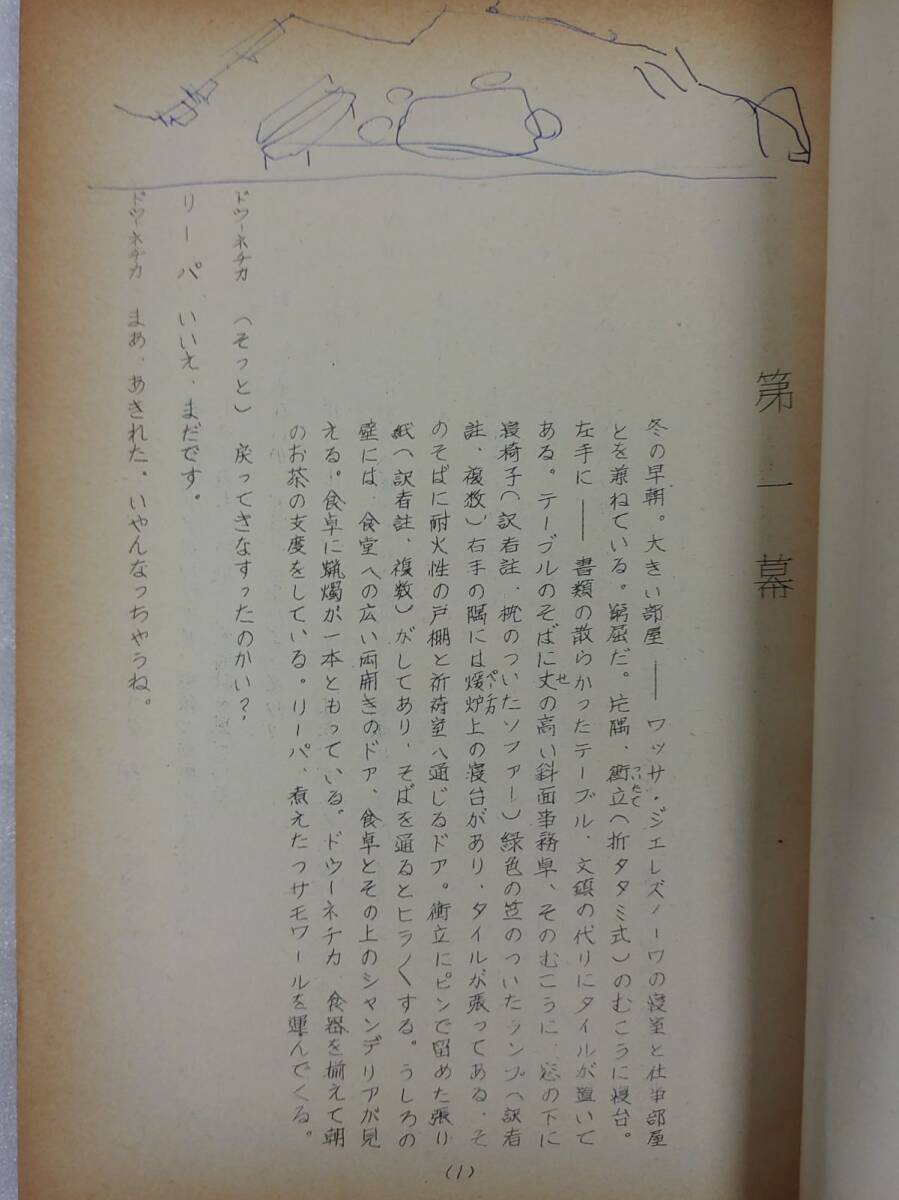 第一幕
冬の早朝。大きい部屋――ワッサ・ジェレズノーワの寝室と仕事部屋
とを兼ねている。窮屈だ。片隅、衝立(折タタミ式)のむこうに寝台。
ついたて
左手に――書類の散らかったテーブル、文鎮の代りにタイルが置いて
ある。テーブルのそばに丈の高い斜面事務卓、そのむこうに、窓の下に
せ
寝椅子(訳者註、枕のついたソファー)緑色の笠のついたランプ(訳者
註、複数)、右手の隅には煖炉上の寝台があり、タイルが張ってある、そ
ペーチカ
のそばに耐火性の戸棚と祈祷室へ通じるドア。衝立にピンで留めた張り
紙(訳者註、複数)がしてあり、そばを通るとヒラ〳〵する。うしろの
壁には、食堂への広い両開きのドア、食卓とその上のシャンデリアが見
える。食卓に蝋燭が一本ともっている。ドウーネチカ 食器を揃えて朝
のお茶の支度をしている。リーパ、煮えたつサモワールを運んでくる。
ドウーネチカ (そっと) 戻ってきなすったのかい?
リーパ いいえ、まだです。
ドウーネチカ まあ、あきれた。いやんなっちゃうね。
(1)